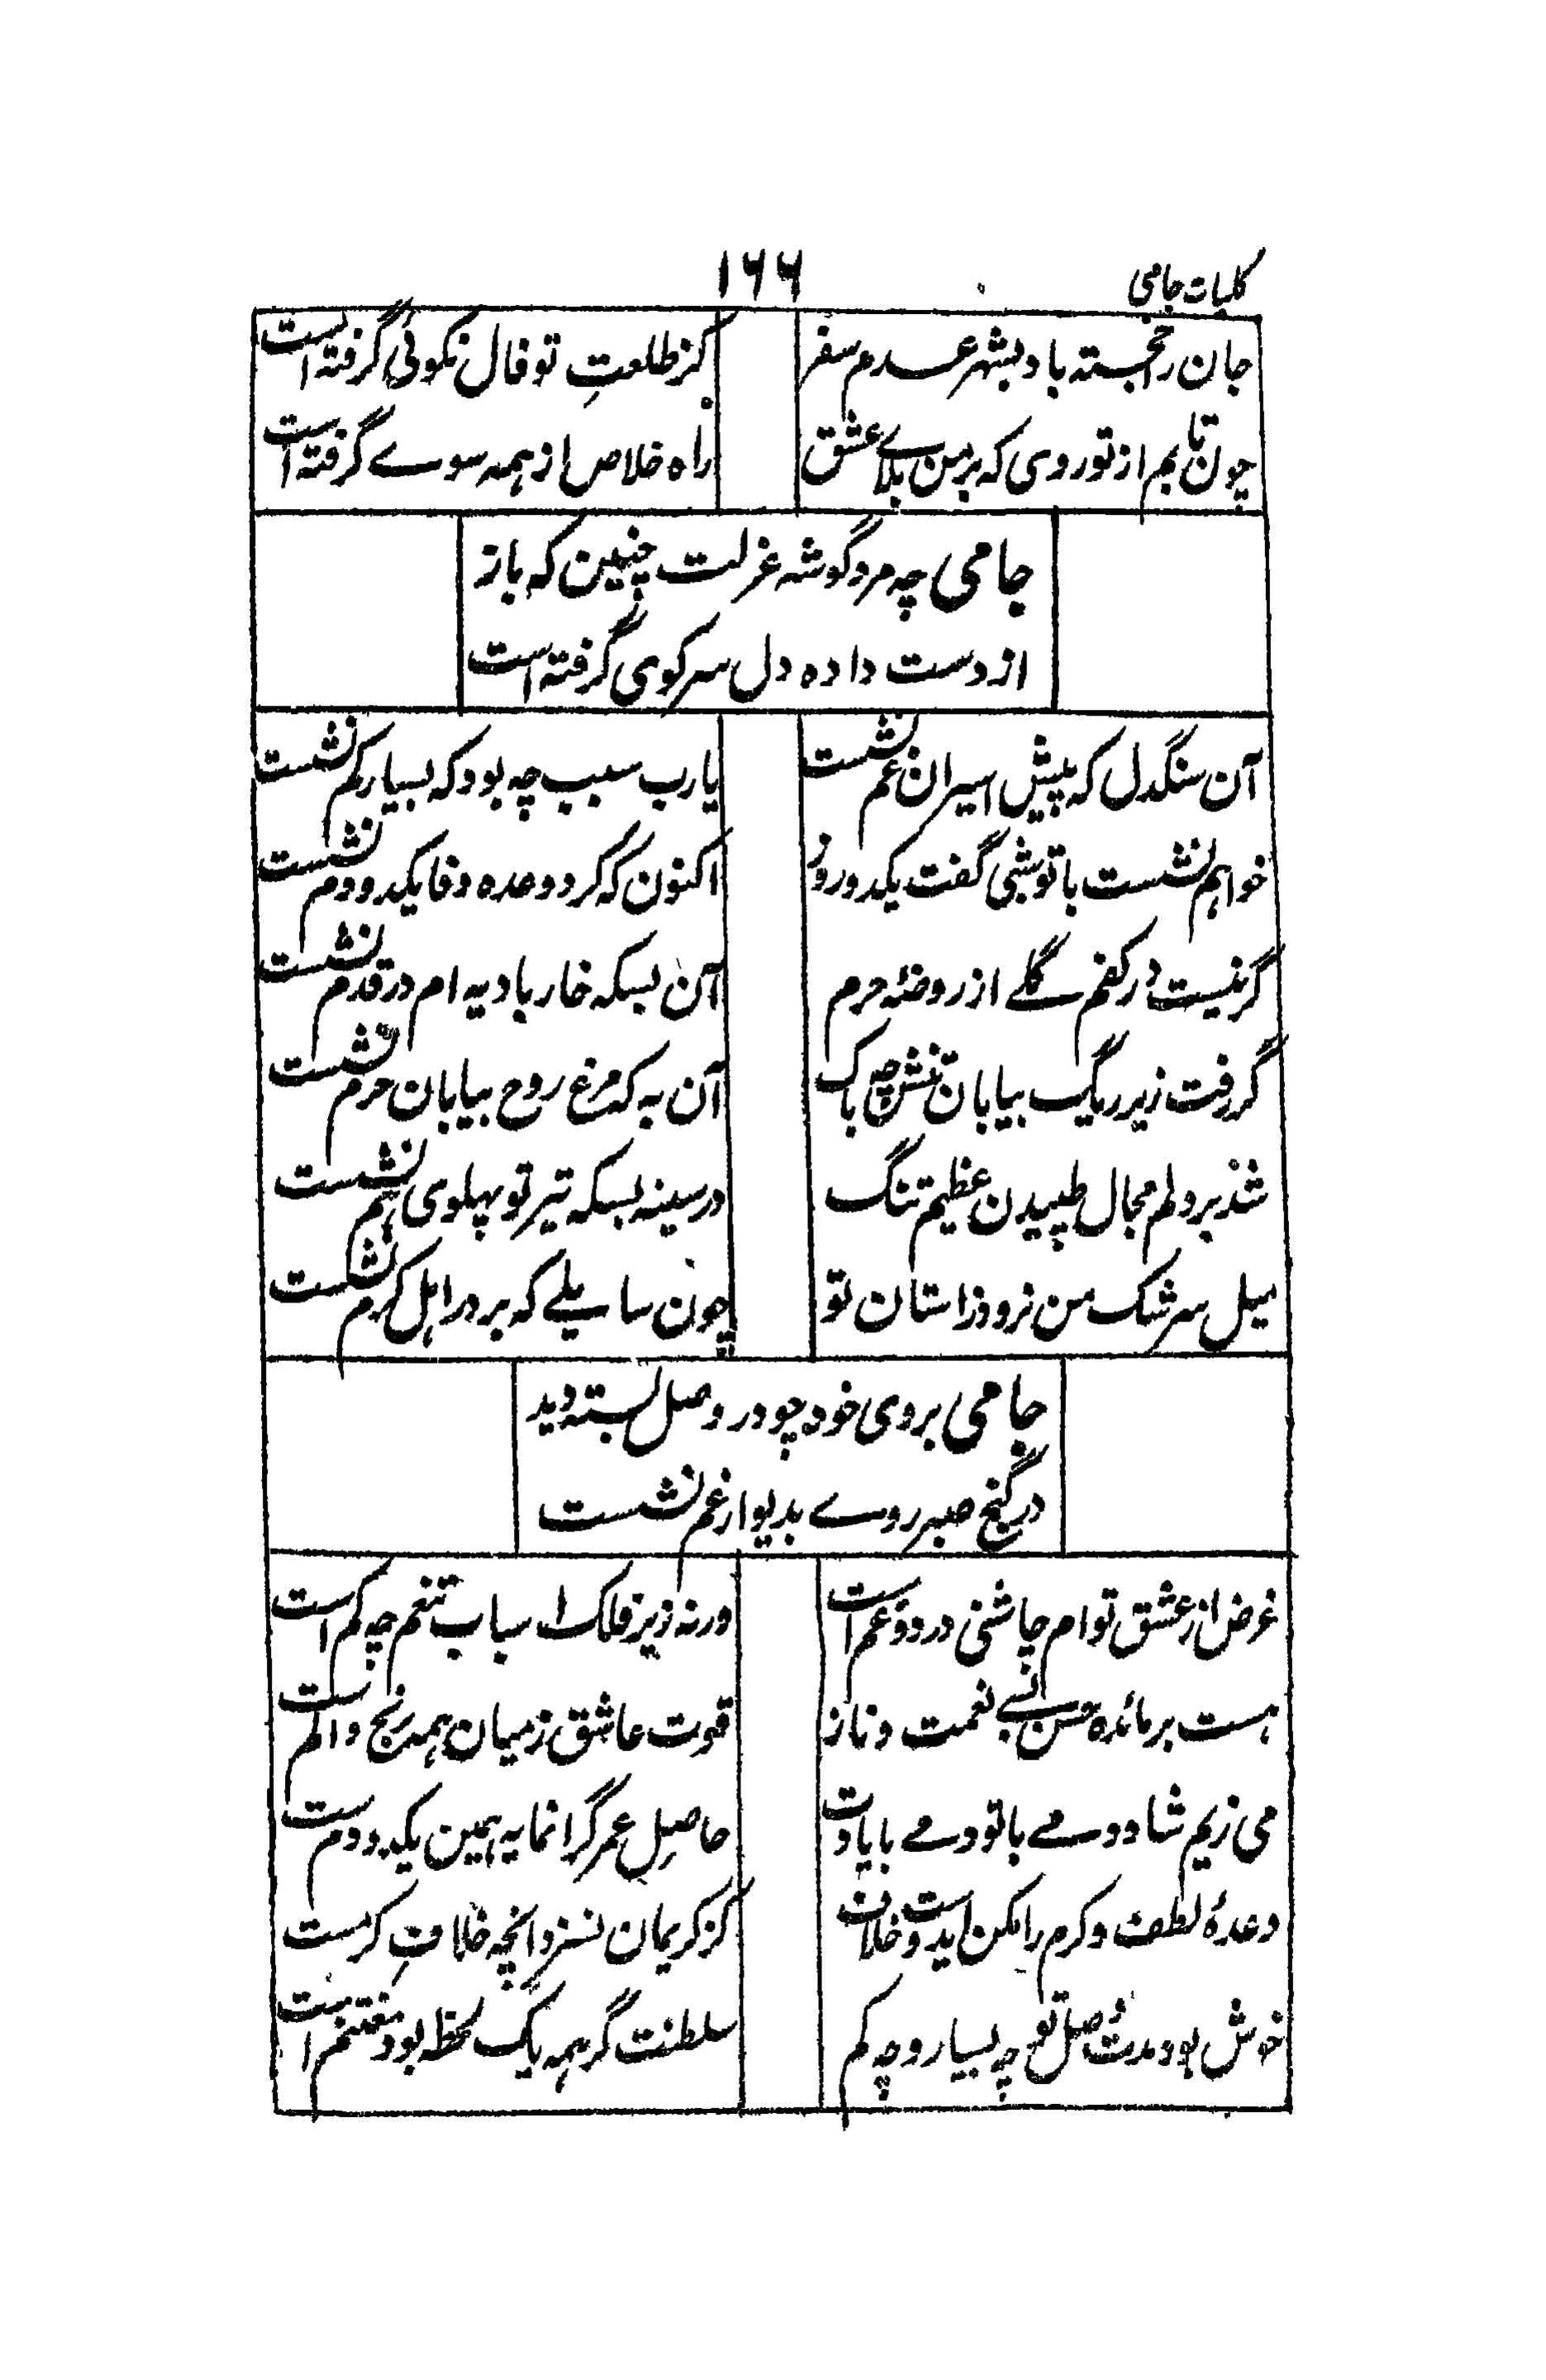 کلیات جامی
۱۶۶
جان را خجسته باد بشهر عدم سفر
کز طلعتِ تو فال نکوئی گرفته است
چون تابم از تو روی که بر من بلاے عشق
راه خلاص از همه سوے گرفته است
جامی چه مرد گوشه عزلت چنین که باز
از دست داده دل سر کوی گرفته است
آن سنگدل که پیش اسیران غم نشست
یارب سبب چه بود که بسیار کم نشست
خواهم نشست با تو شبی گفت یکدو روز
اکنون که کرد وعده وفا یکدو دم نشست
گر نیست در کفم گلے از روضهٔ حرم
آن بسکه خار بادیه ام در قدم نشست
گر رفت زیر ریگ بیابان تنش چه باک
آن به که مرغ روح بیابان حرم نشست
شد بر دلم مجال طپیدن عظیم تنگ
در سینه بسکه تیر تو پهلوی هم نشست
سیل سرشک من نرود زاستان تو
چون سایلے که بر در اهل کرم نشست
جامی بروی خود چو در وصل بسته دید
در کنج صبر روے بدیوار غم نشست
غرض از عشق توام چاشنی درد و غم است
ورنه زیر فلک اسباب تنعم چه کم است
هست بر مائده حسن بسے نعمت و ناز
قوت عاشق ز میان همه رنج و الم ست
می زیم شاد دمے با تو دمے با یادت
حاصلِ عمر گرانمایه همین یکدو دم ست
وعدهٔ لطف و کرم را مکن ایدوست خلاف
کز کریمان نسزد آنچه خلافِ کرمست
خوش بود مدت وصل تو چه بسیار و چه کم
سلطنت گر همه یک لحظه بود مغتنم است